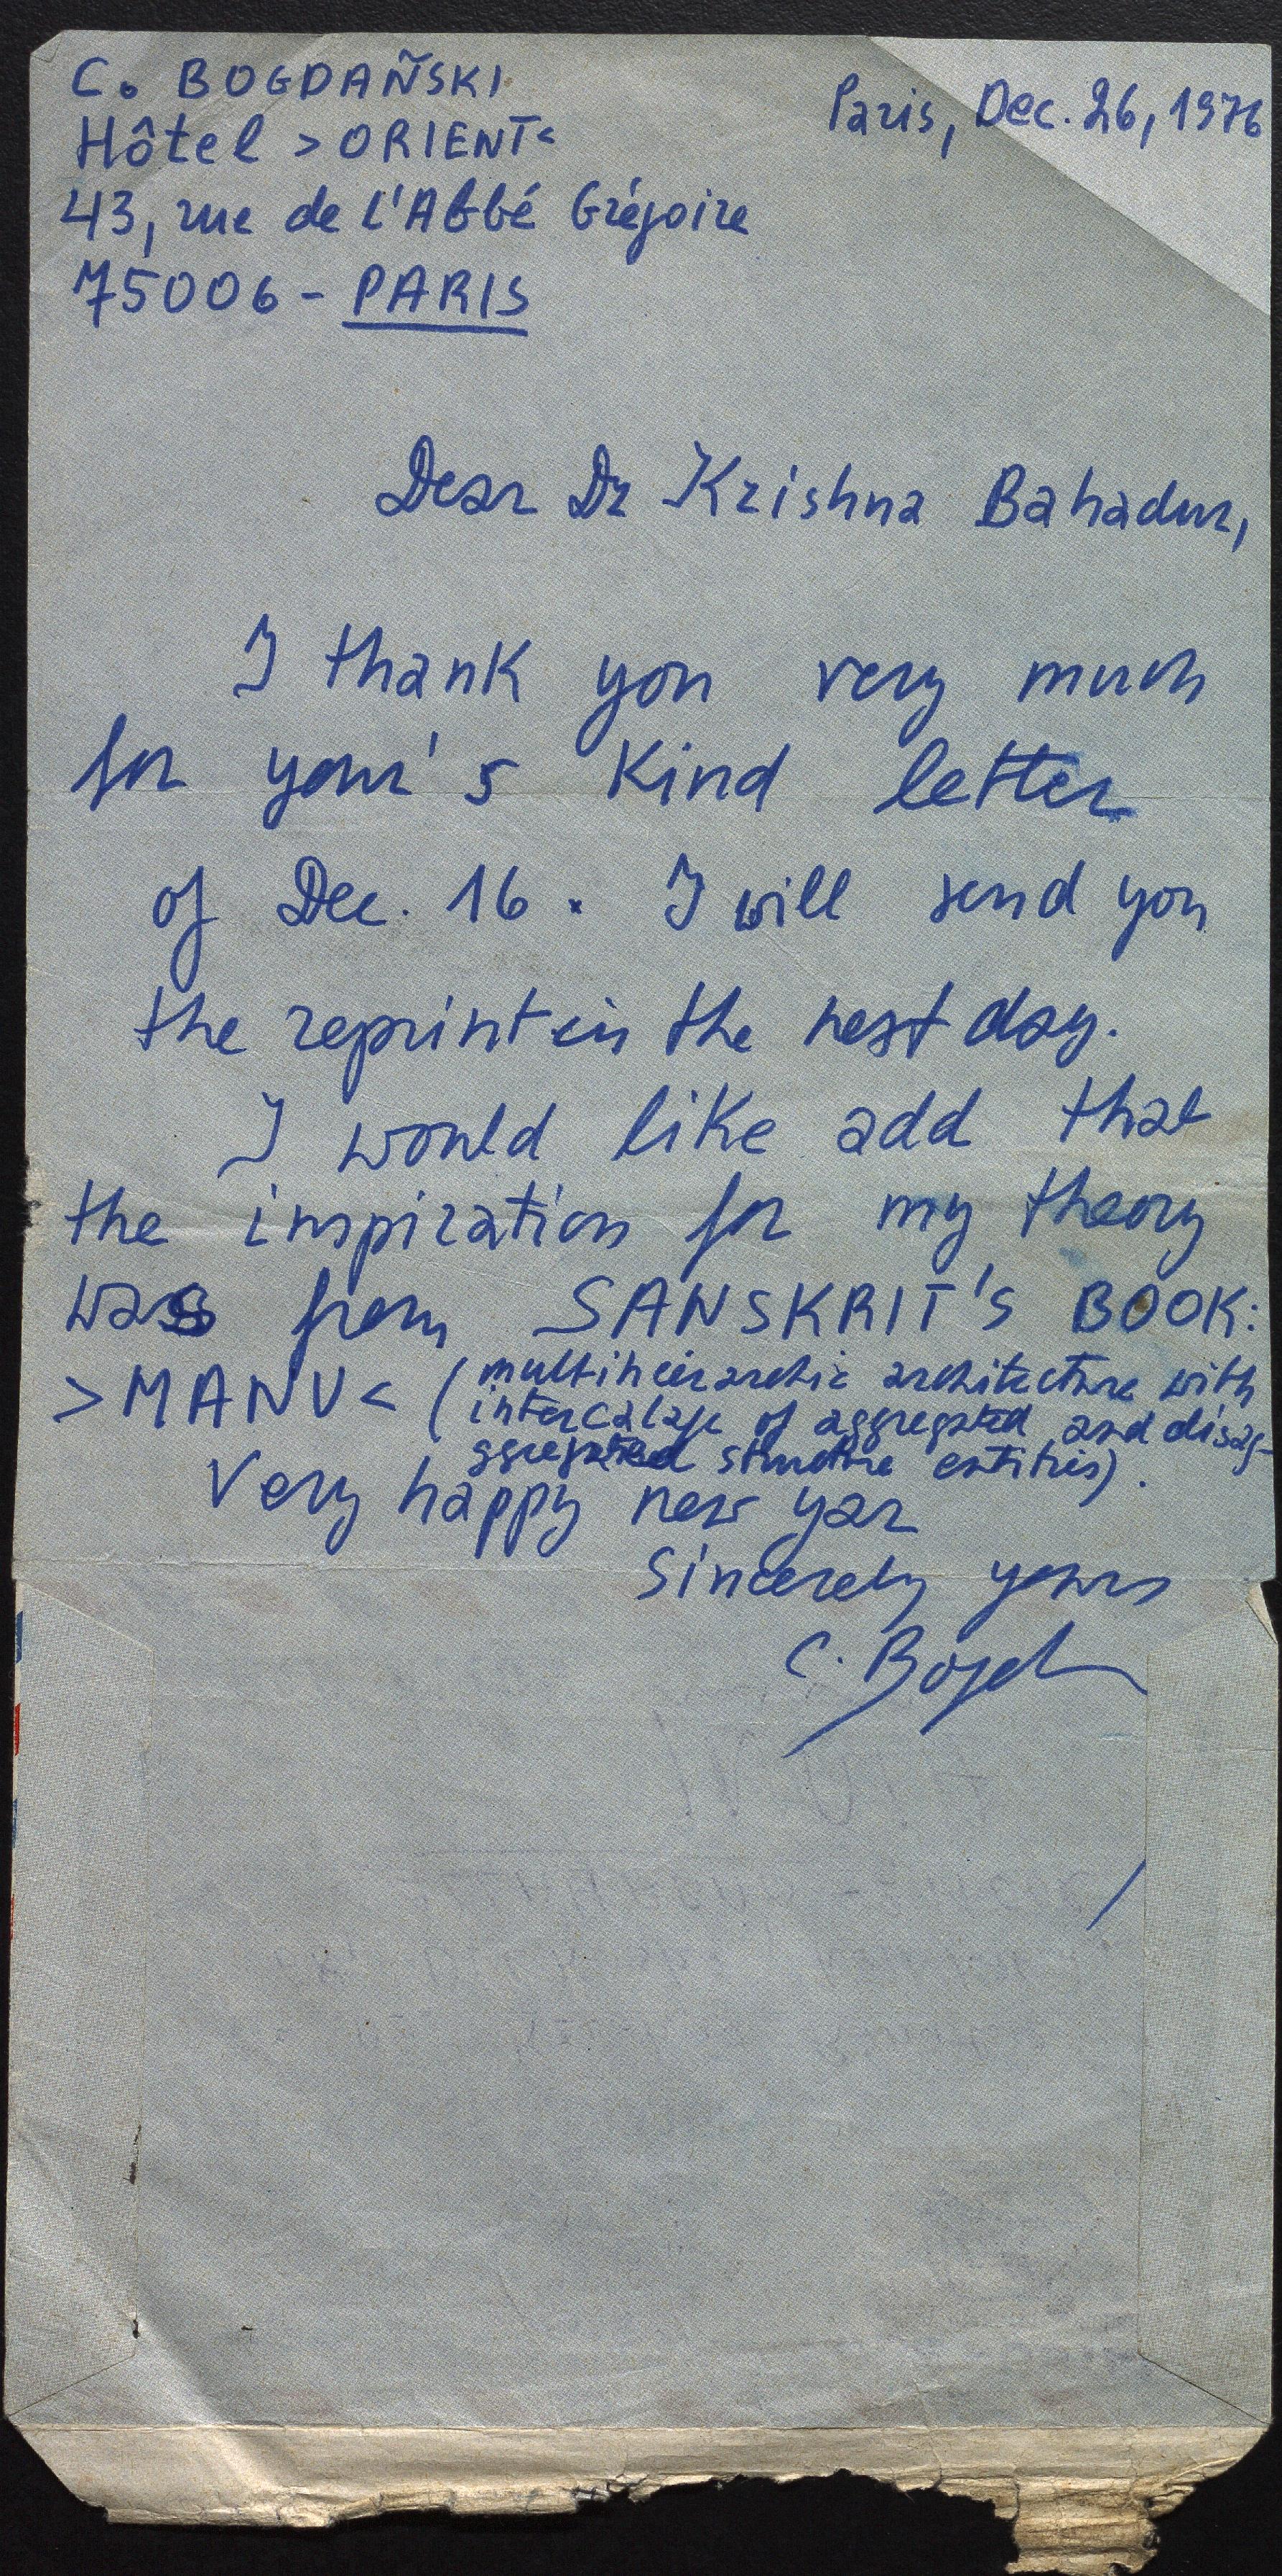 C. BOGDAÑSKI
Paris, Dec. 26, 1976
Hôtel >ORIENT<
43, rue de l'Abbé Grégoire
75006 - PARIS
Dear Dr Krishna Bahadur,
I thank you very much
for your's kind letter
of Dec. 16. I will send you
the reprint in the next day.
I would like add that
the inspiration for my theory
was from SANSKRIT'S BOOK:
>MANU< (multihierarchic architecture with
intercalage of aggregated and disag-
ggregated structure entities).
Very happy new yar
Sincerely yours
C. Bogd